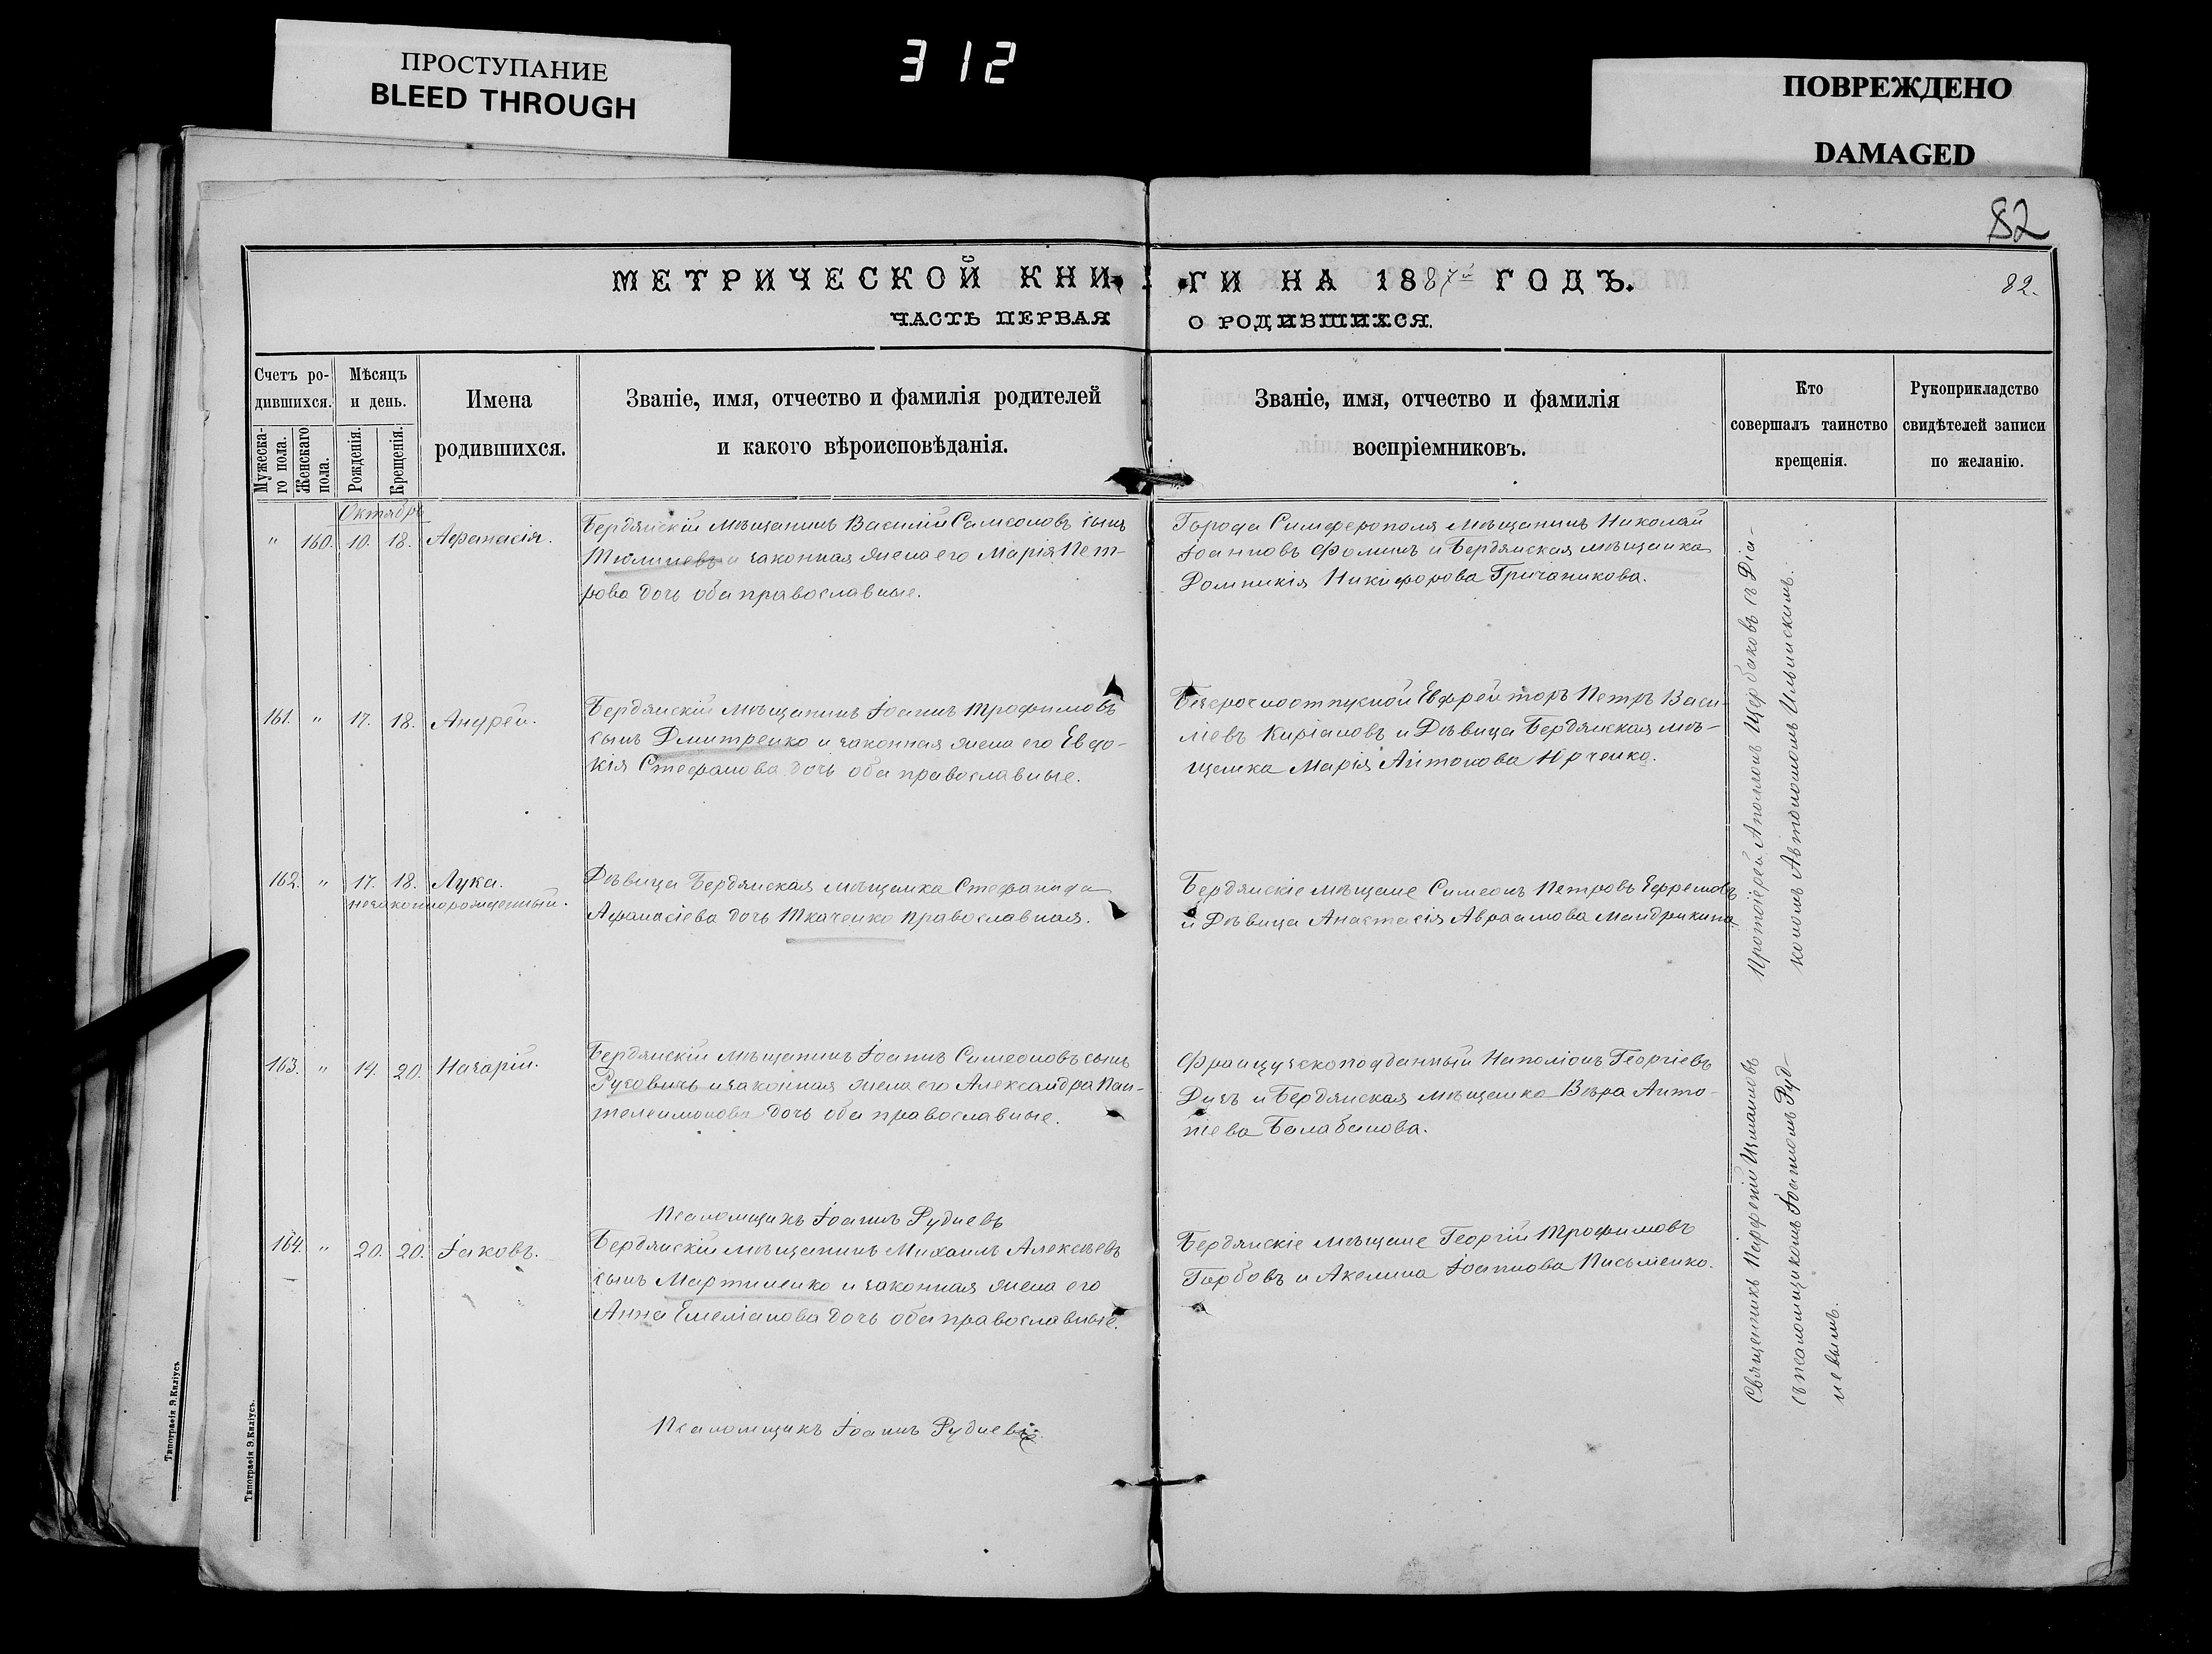 ПРОСТУПАНИЕ
BLEED THROUGH
312
ПОВРЕЖДЕНО
DAMAGED
82
МЕТРИЧЕСКОЙ КНИ-
ГИ НА 1887й ГОДЪ.
82.
ЧАСТЬ ПЕРВАЯ
О РОДИВШИХСЯ.
Счетъ ро-
дившихся.
Мужеска-
го пола.
Женскаго
пола.
Мѣсяцъ
и день.
Рожденія.
Крещенія.
Имена
родившихся.
Званіе, имя, отчество и фамилія родителей
и какого вѣроисповѣданія.
Званіе, имя, отчество и фамилія
воспріемниковъ.
Кто
совершалъ таинство
крещенія.
Рукоприкладство
свидѣтелей записи
по желанію.
Октябрь
" 160. 10. 18. Афанасія.
Бердянскій мѣщанинъ Василій Самсоновъ сынъ
и законная жена его Марія Пет-
рова дочь оба православные.
Города Симферополя мѣщанинъ Николай
Іоанновъ Фоминъ и Бердянская мѣщанка
Домникія Никифорова Гричаникова.
161. " 17. 18. Андрей.
Бердянскій мѣщанинъ Іоаннъ Трофимовъ
сынъ Дмитренко и законная жена его Евдо-
кія Стефанова дочь оба православные.
Безсрочноотпускной Ефрейторъ Петръ Васи-
ліевъ Киріановъ и Дѣвица Бердянская мѣ-
щанка Марія Антонова Юрченко.
162. " 17. 18. Лука.
незаконнорожденный.
Дѣвица Бердянская мѣщанка Стефанида
Афанасіева дочь Ткаченко православная.
Бердянскіе мѣщане Симеонъ Петровъ Ефремовъ
и Дѣвица Анастасія Авраамова Мандрикина.
163. " 14. 20. Назарій.
Бердянскій мѣщанинъ Іоаннъ Симеоновъ сынъ
Рузовичъ и законная жена его Александра Пан-
телеимонова дочь оба православные.
Французскоподданный Наполіонъ Георгіевъ
и Бердянская мѣщанка Вѣра Анто-
ніева Балабанова.
Псаломщикъ Іоаннъ Рудневъ
164. " 20. 20. Іаковъ.
Бердянскій мѣщанинъ Михаилъ Алексѣевъ
сынъ Мартиненко и законная жена его
Анна Емеліанова дочь оба православные.
Бердянскіе мѣщане Георгій Трофимовъ
Горбовъ и Акелина Іоаннова Письменко.
Псаломщикъ Іоаннъ Рудневъ.
Протоіерей Аполлонъ Щербаковъ съ Діа-
кономъ Автономомъ Ильинскимъ.
Священникъ Парфеній
съ псаломщикомъ Іоанномъ Руд-
невымъ.
Типографія Э. Киліусъ.
Типографія Э. Киліусъ.